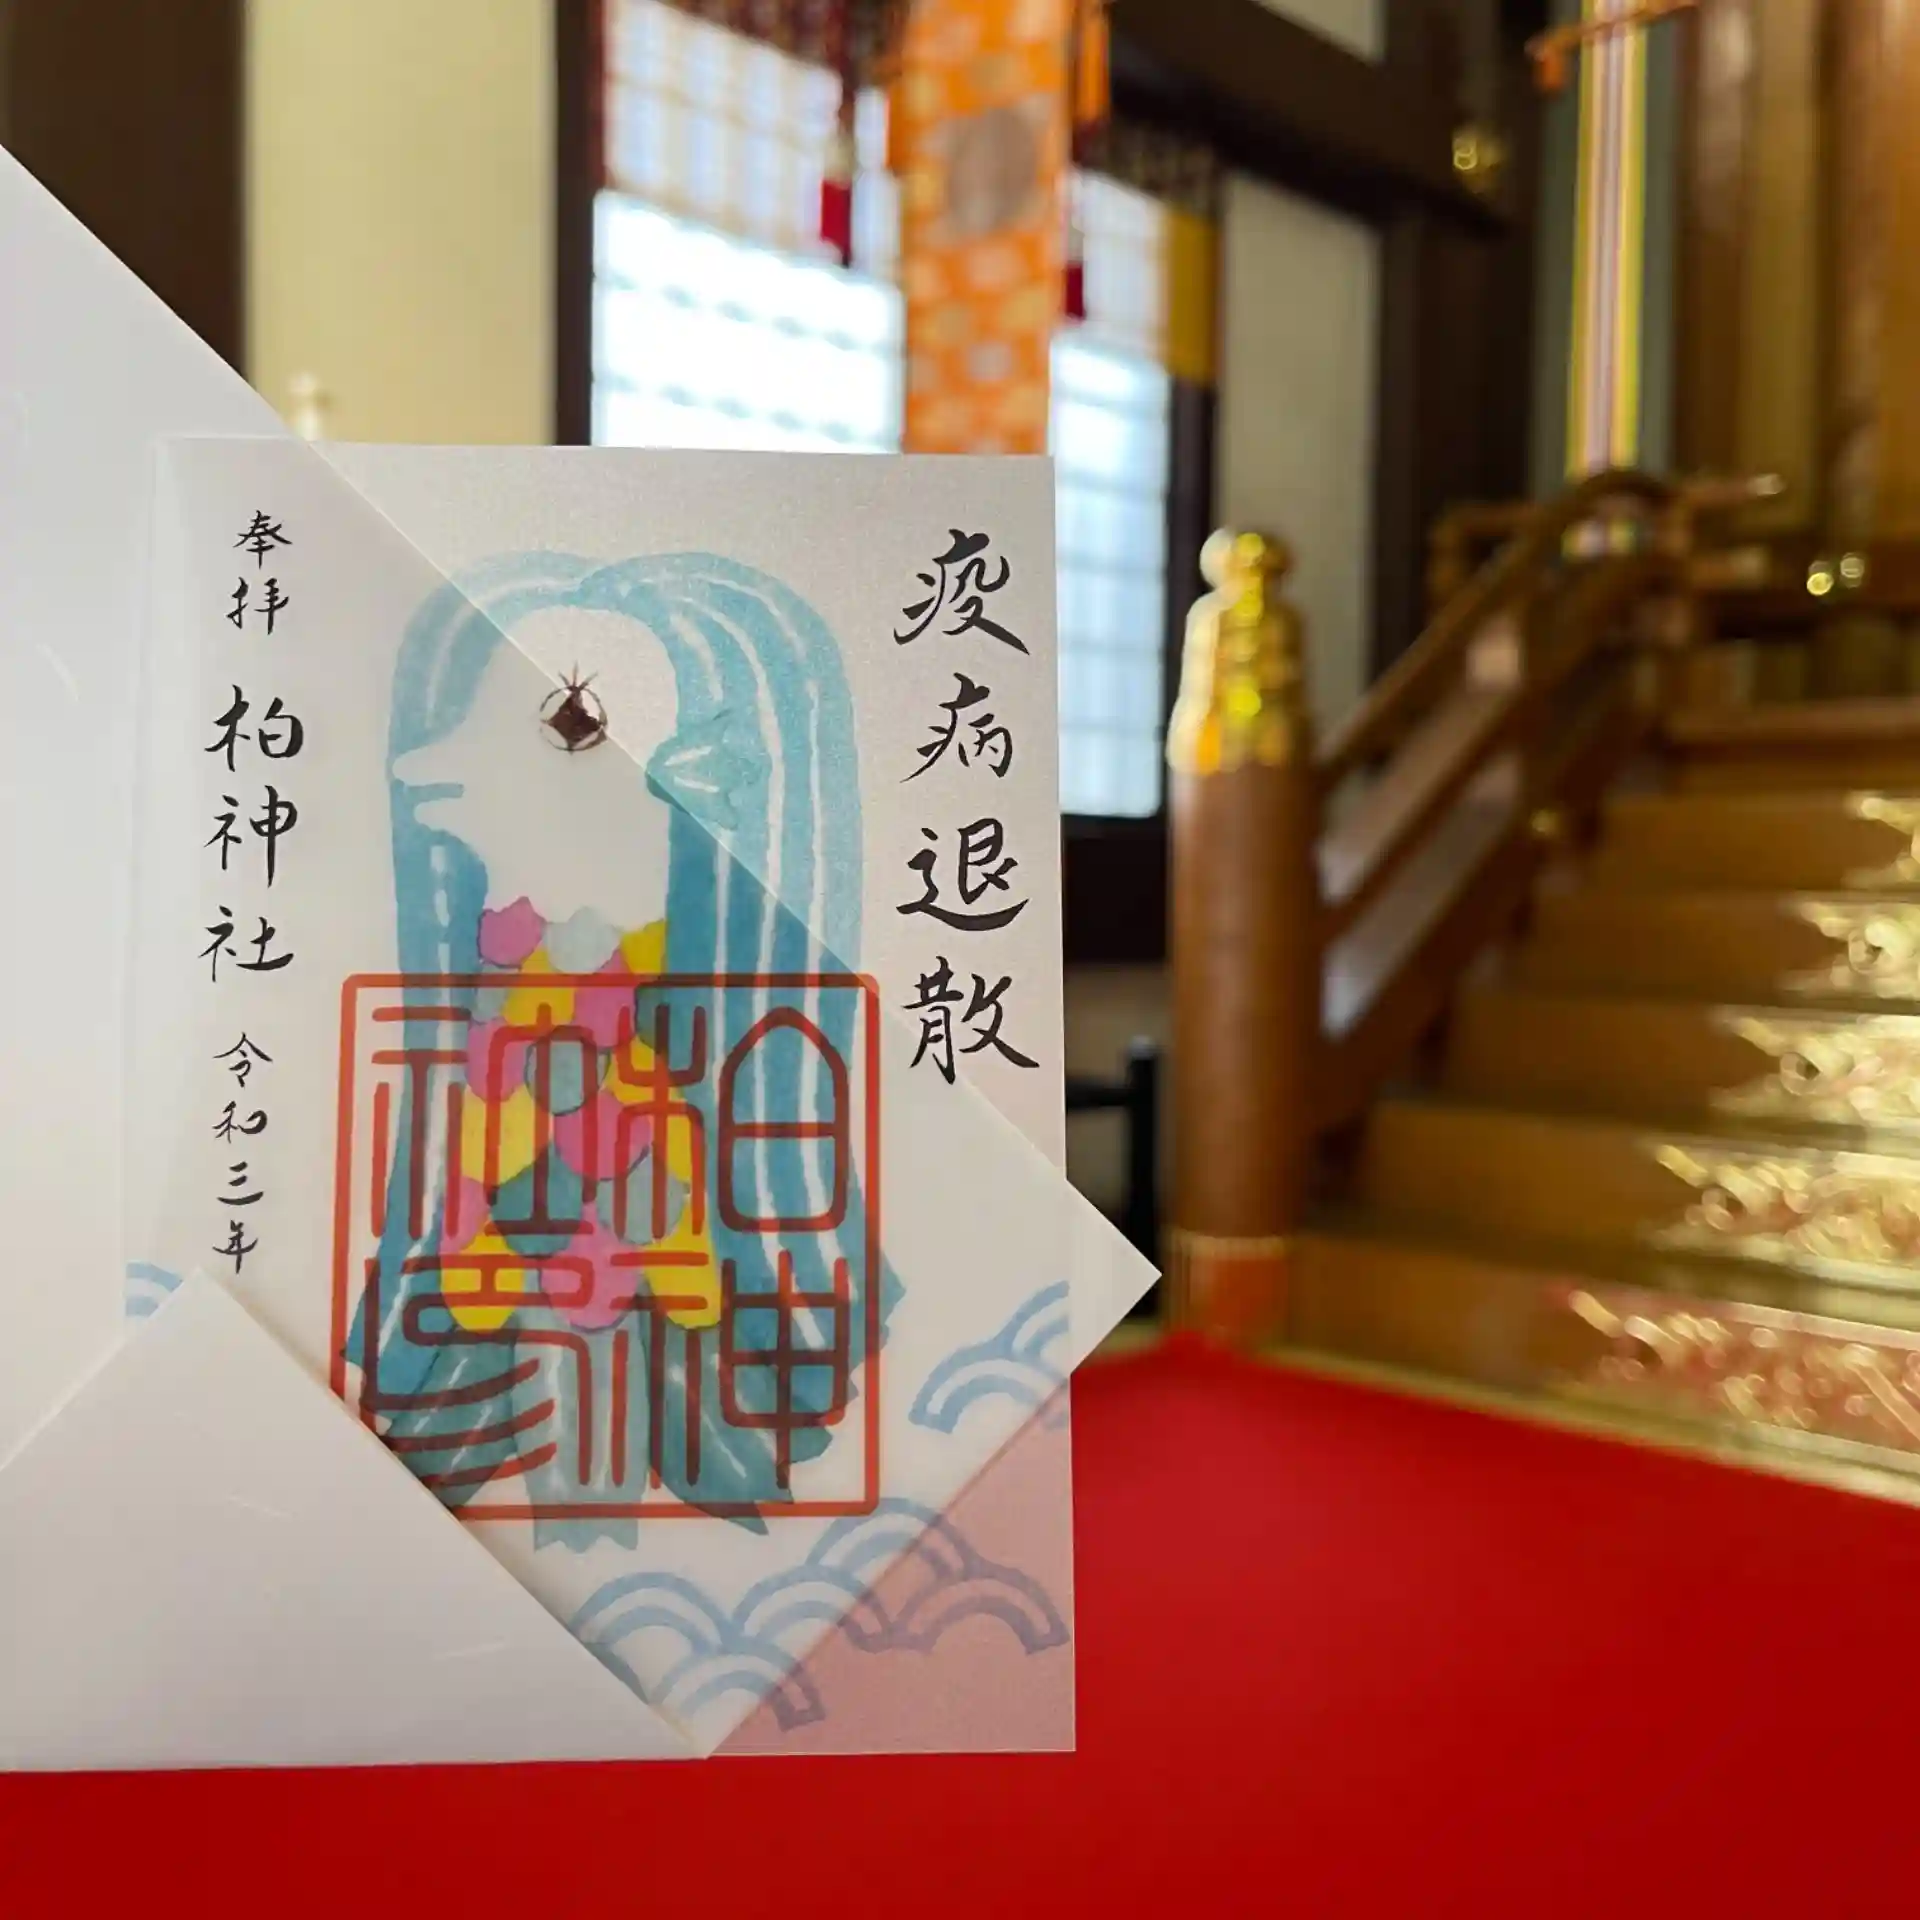 疫病退散
柏神社印
奉拝 柏神社 令和三年